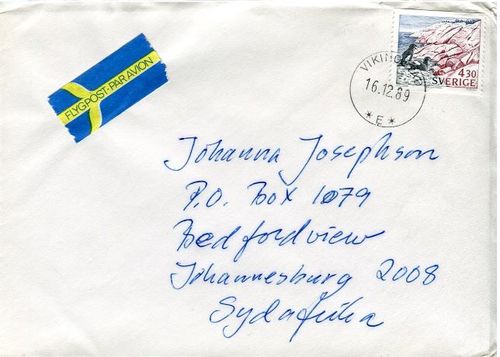 FLYGPOST-PAR AVION
VIKING
16.12.89
* E *
4.30
SVERIGE
Johanna Josephson
P.O. Box 1079
Bedfordview
Johannesburg 2008
Sydafrika